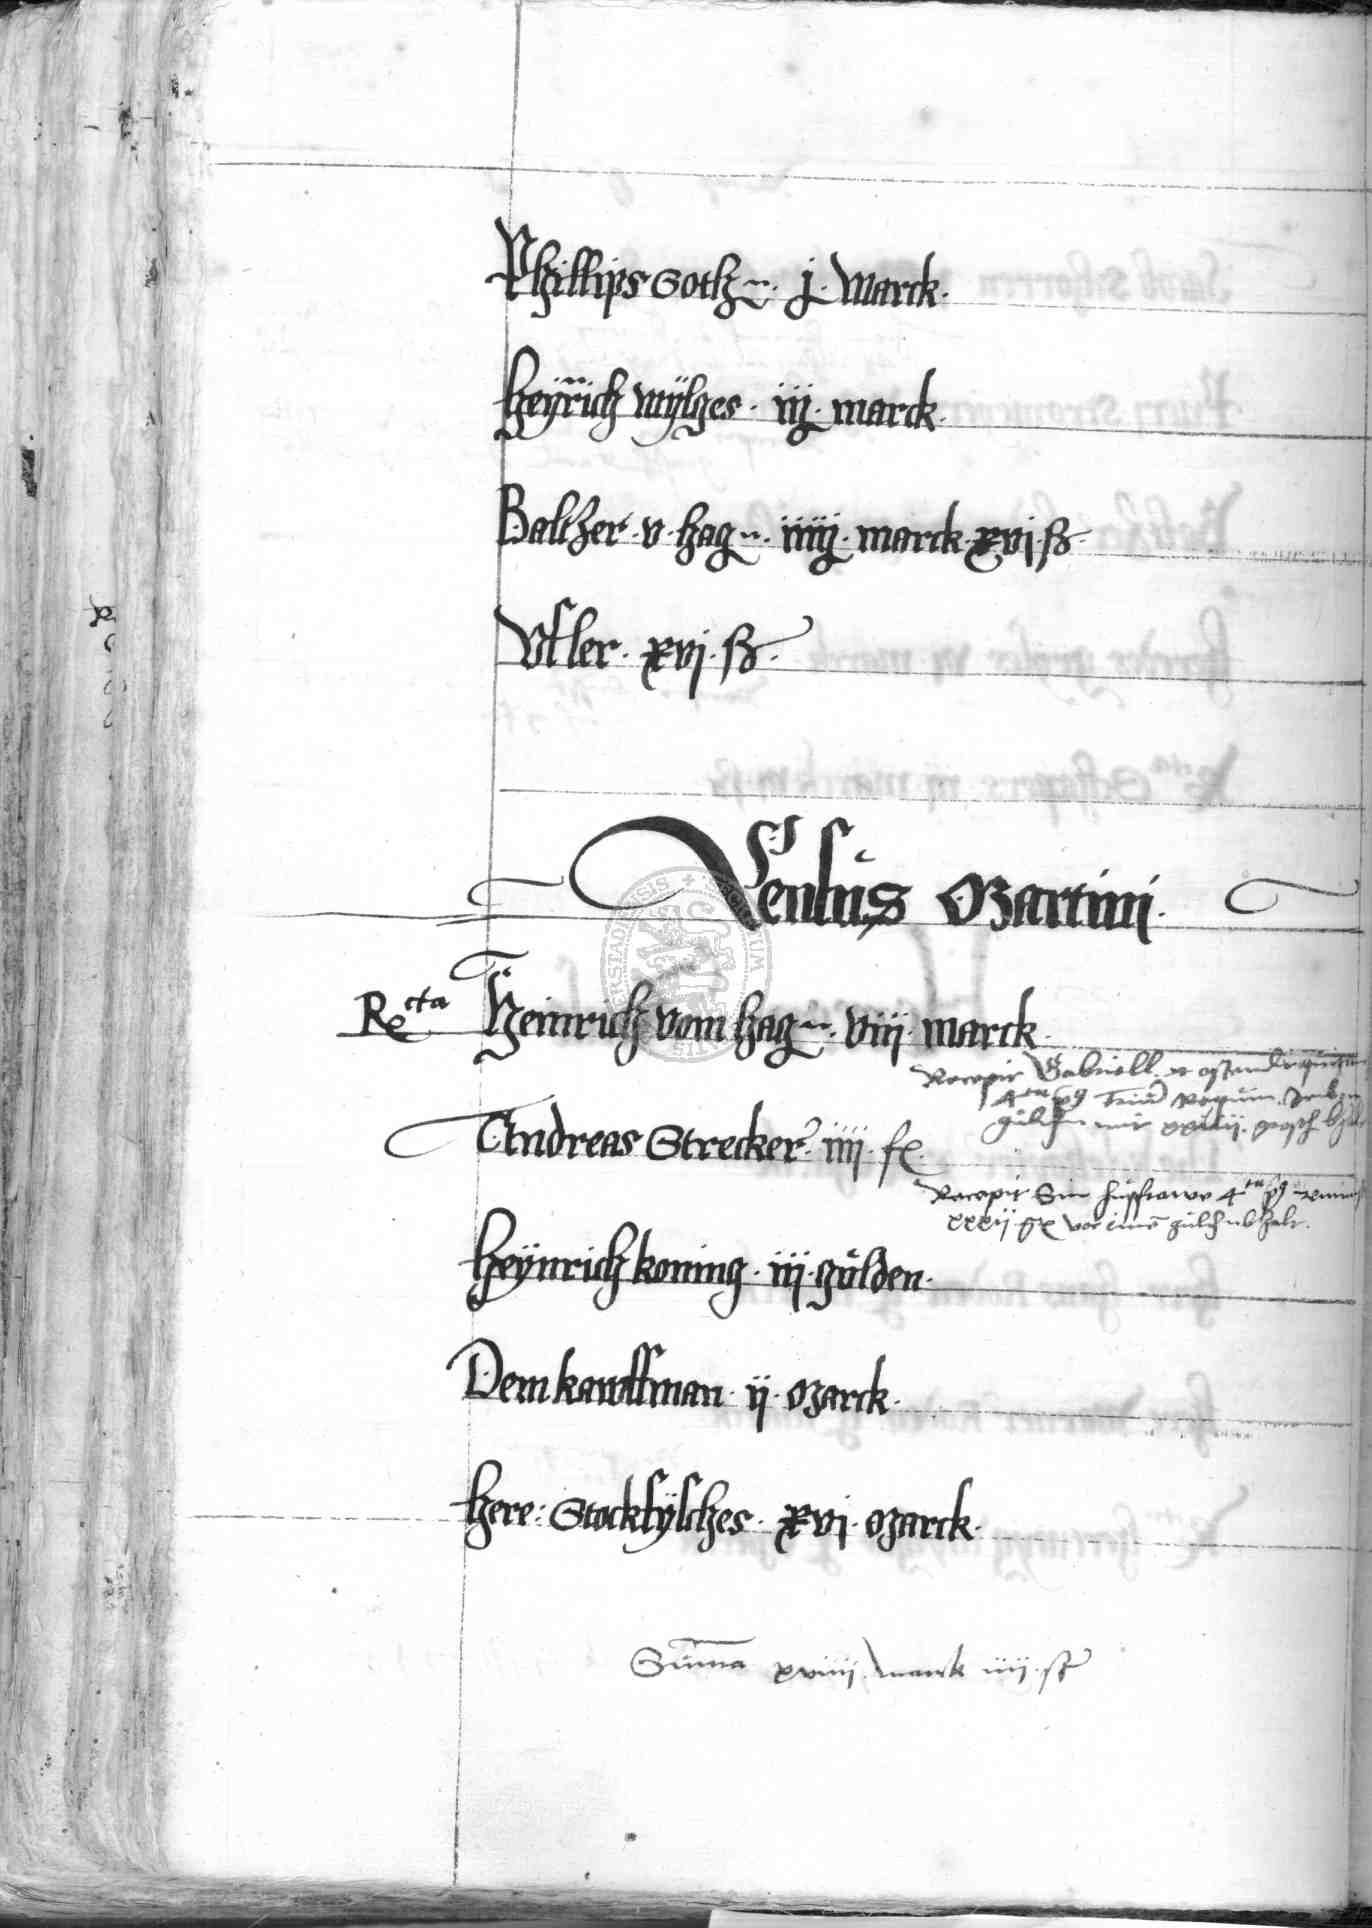 Phillips Goth~ · j · Marck ·
Heÿnrich wÿlges · iij · marck ·
Baltzer · v · hag~ · iiiij · marck · xvj · ß ·
Vtsler · xvj · ß ·
Census Martini ·
Rcta Heinrich vom hag~ · viij · marck ·
Recepit Gabriell
4ta
gulden xxxiij
Andreas Strecker · iiij · fl ·
Recepit Sin hußfrawe 4ta
xxxij gr vor eine gulden
Heÿnrich koning · iij · gulden ·
Dem kawffman · ij · Marck ·
Here : Stockfÿsches · xvj · Marck ·
Summa xviiij marck iiij · ß